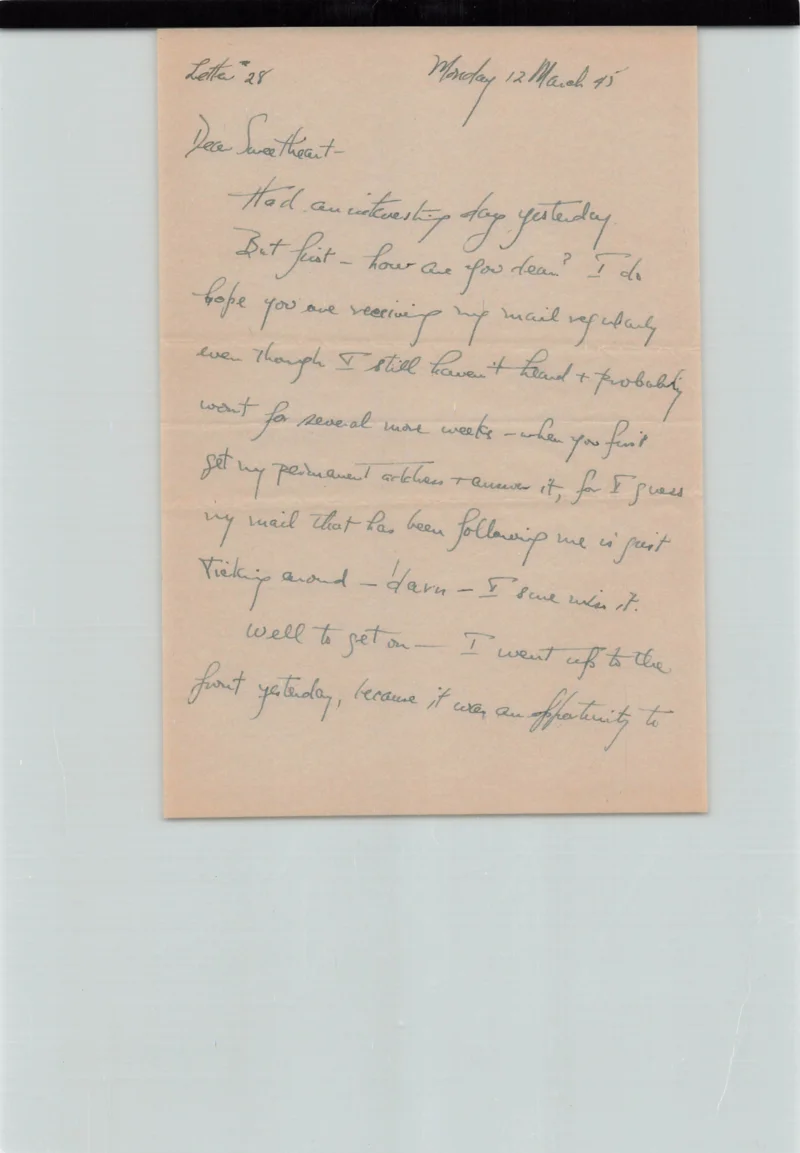 Letter # 28 Monday 12 March 45
Dear Sweetheart -
Had an interesting day yesterday.
But first - how are you dear? I do
hope you are receiving my mail regularly
even though I still haven't heard + probably
wont for several more weeks - when you first
get my permanent address + answer it, for I guess
my mail that has been following me is just
around - darn - I sure miss it.
Well to get on - I went up to the
front yesterday, because it was an opportunity to